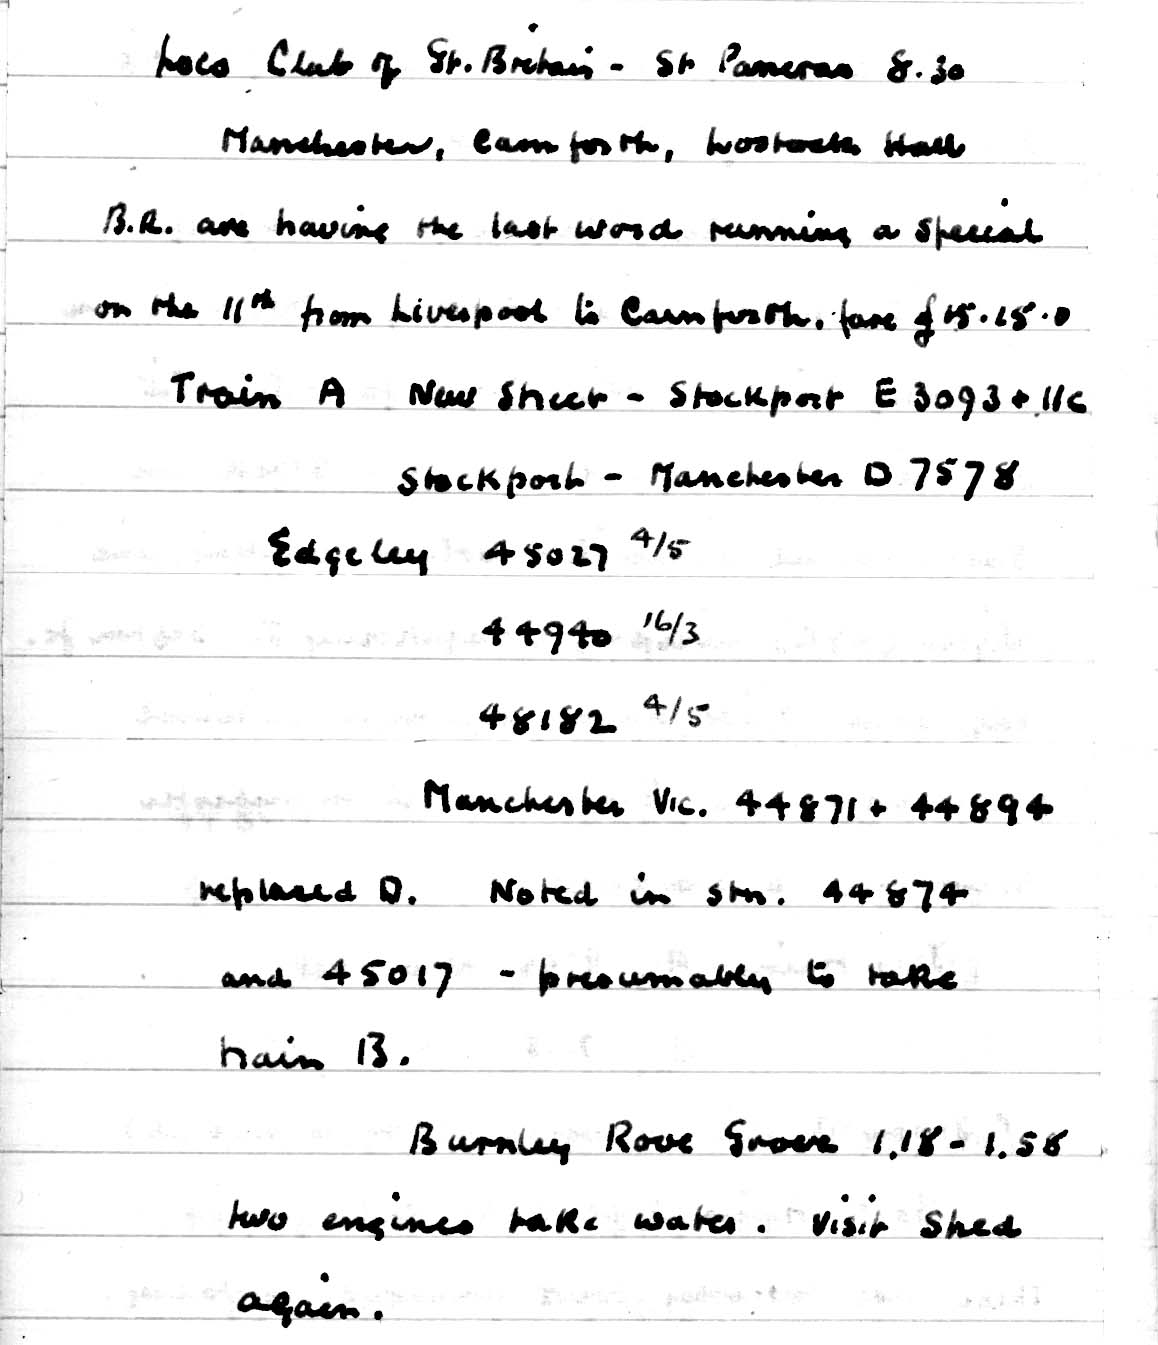 Loco Club of Gt. Britain - St Pancras 8.30
Manchester, Carnforth, Lostock Hall
B.R. are having the last word running a special
on the 11th from Liverpool to Carnforth. fare £15.15.0
Train A New Street - Stockport E 3093 + 11c
Stockport - Manchester D 7578
Edgeley 45027 4/5
44940 16/3
48182 4/5
Manchester Vic. 44871 + 44894
replaced D. Noted in stn. 44874
and 45017 - presumably to take
train B.
Burnley Rose Grove 1.18 - 1.58
two engines take water. Visit Shed
again.